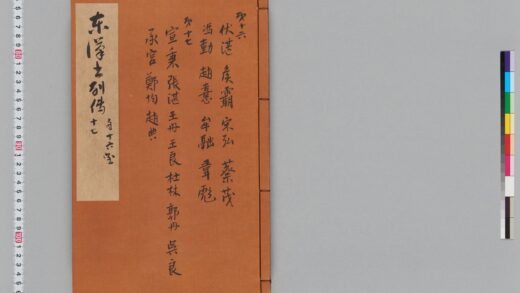 第十六
伏湛 矦霸 宋弘 蔡茂
馮勤 趙憙 牟融 韋彪
第十七
宣秉 張湛 王丹 王良 杜林 郭丹 吳良
承宮 鄭均 趙典
東漢書列傳
十七